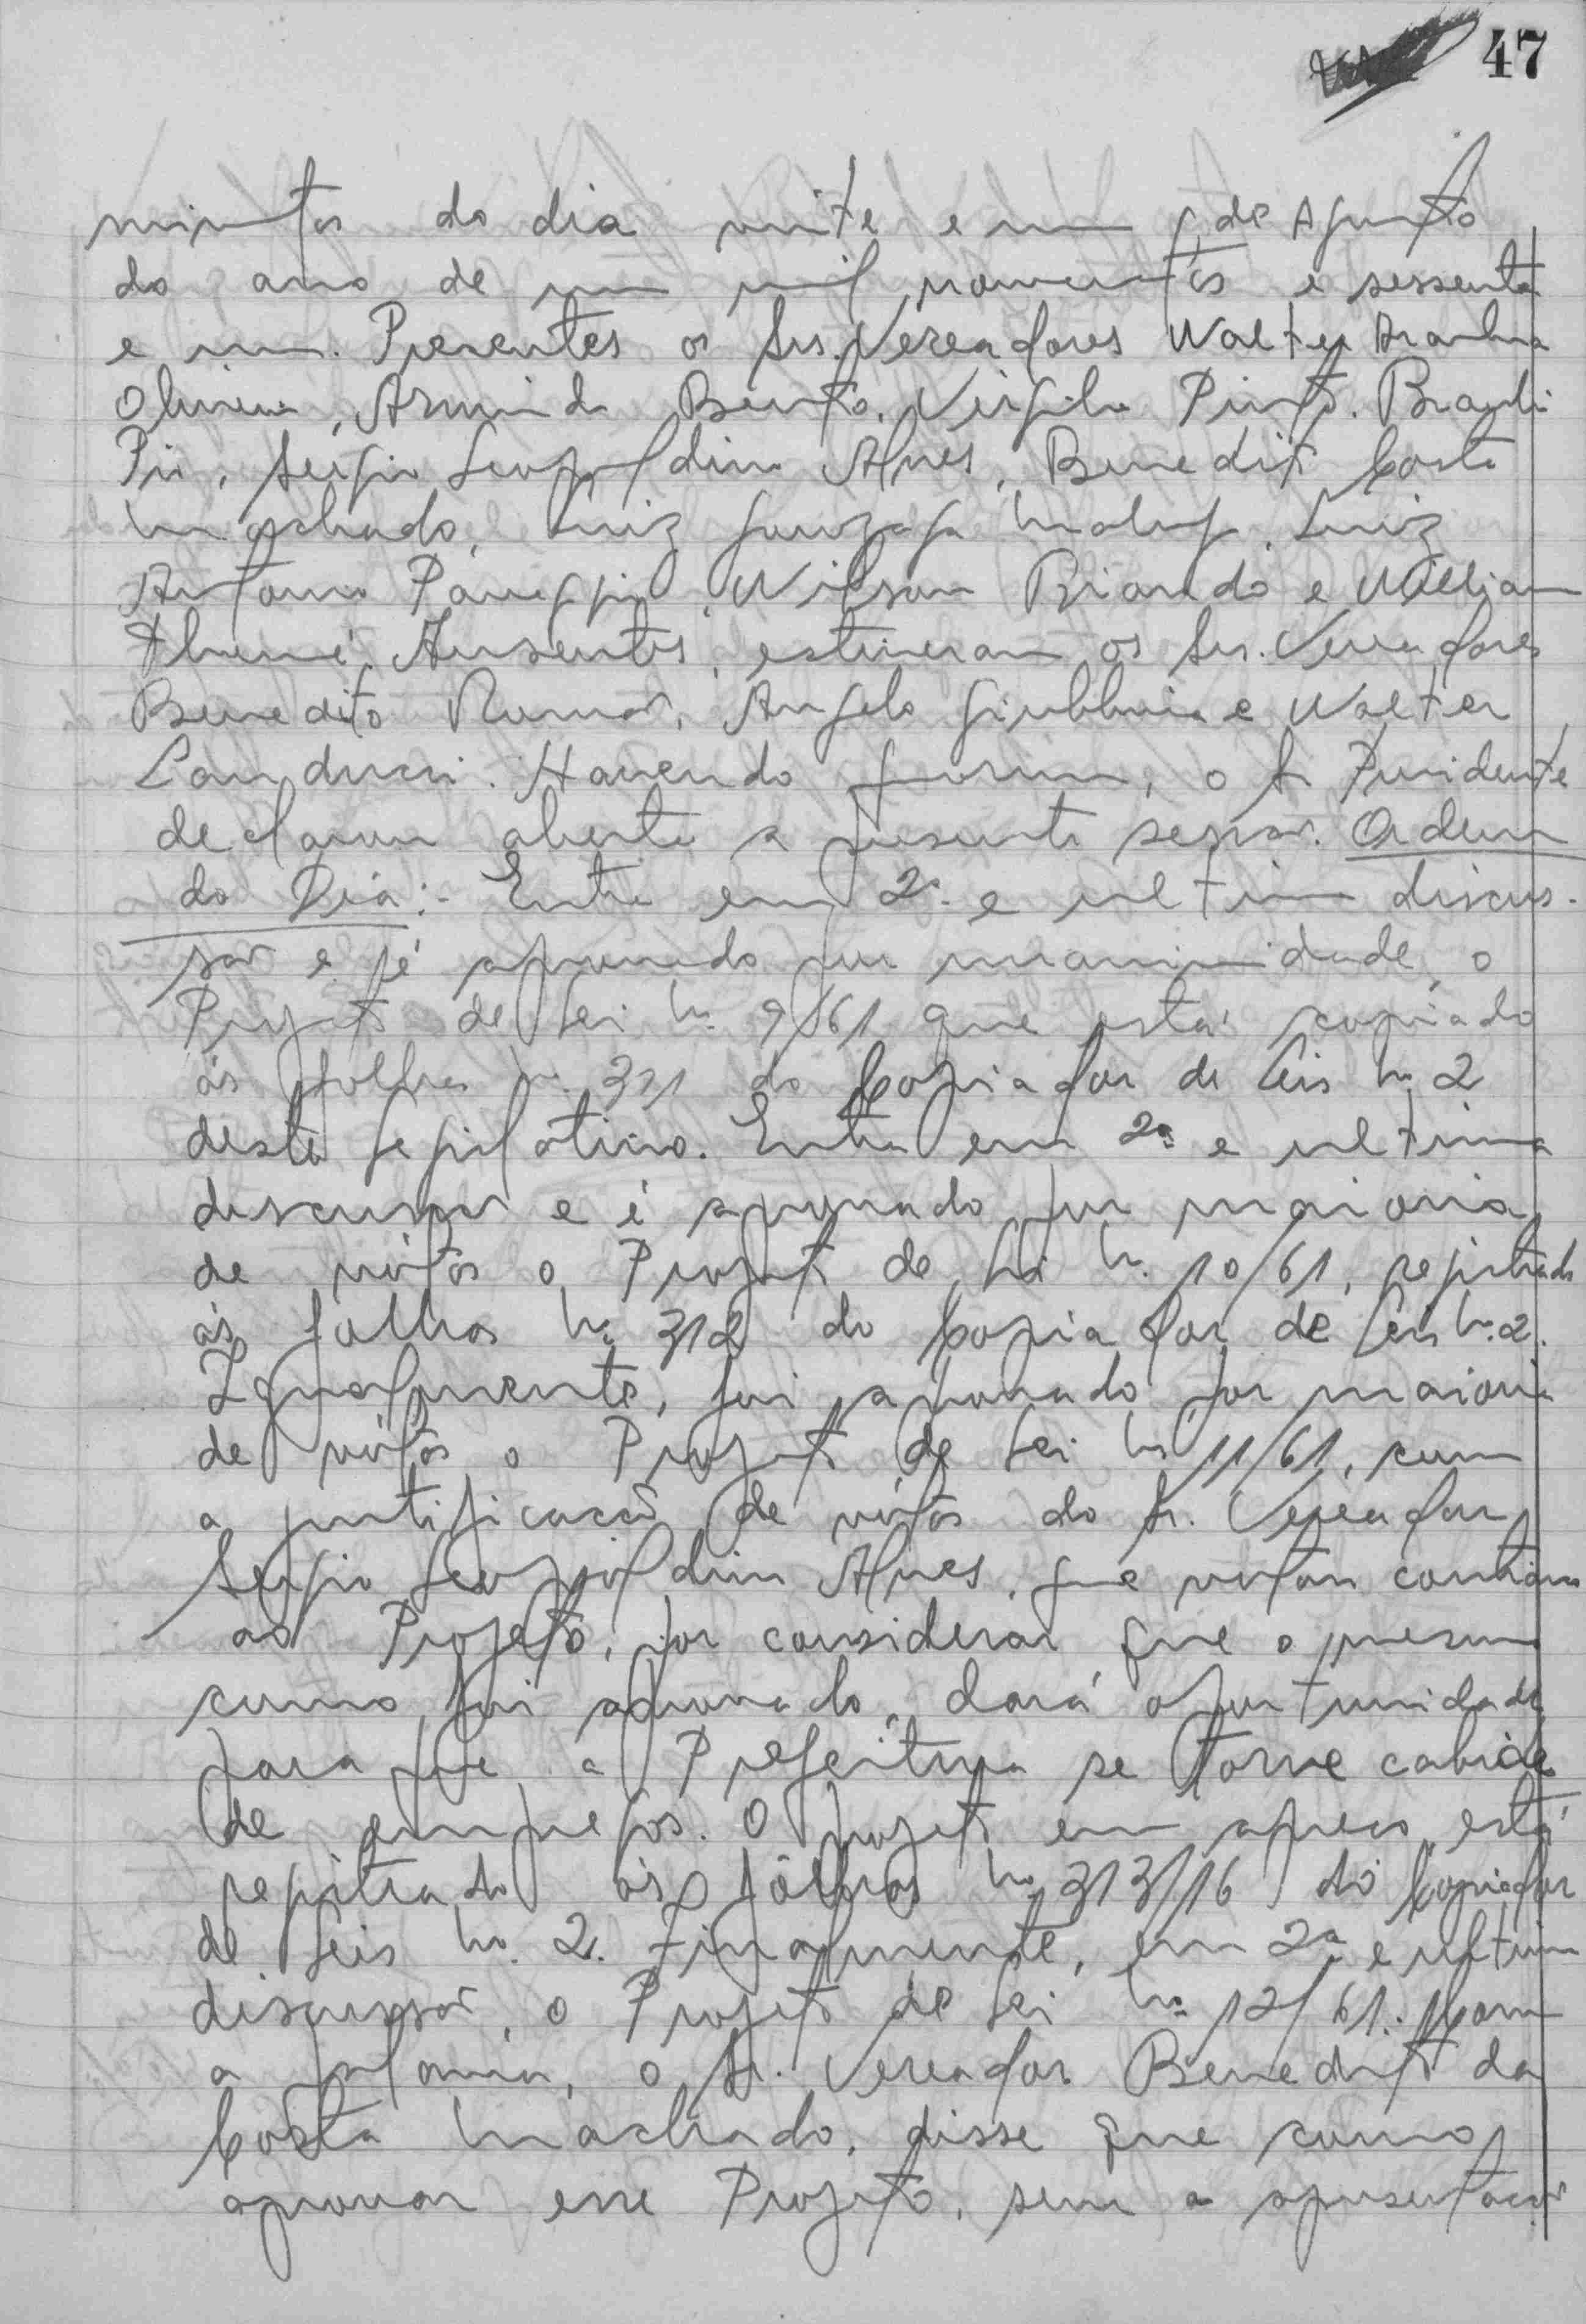 47
minutos do dia vinte e um de Agosto
do ano de um mil novecentos e sessenta
e um. Presentes os Srs. Vereadores Walter Aranha
Oliveira, Armindo Bento, Virgilio Pinto, Brandi
Pir, Sergio Leopoldino Alves, Benedito Costa
Machado, Luiz Gonzaga Maluf, Luiz
Antonio Paneggio, Wilson Briando e William
Thumé. Ausentes, estiveram os Srs. Vereadores
Benedito Numar, Angelo Giubbina e Walter
Landucci. Havendo quorum, o Sr. Presidente
declarou aberta a presente sessão. Ordem
do Dia:- Entra em 2ª e ultima discus-
são e é aprovado por unanimidade, o
Projeto de Lei nº 9/61 que está copiado
ás folhas nº 311 do Copiador de Leis nº 2
deste Legislativo. Entra em 2ª e ultima
discussão e é aprovado por maioria
de vótos o Projeto de Lei nº 10/61, registrado
ás folhas nº 312 do Copiador de Leis nº 2.
Igualmente, foi aprovado por maioria
de vótos o Projeto de Lei nº 11/61, com
a justificação de vótos do Sr. Vereador
Sergio Leopoldino Alves, que votou contrario
ao Projeto, por considerar que o mesmo
como foi aprovado, dará oportunidade
para que a Prefeitura se torne cabide
de empregos. O projeto em apreço está
registrado ás fôlhas nº 313/16 do Copiador
de Leis nº 2. Finalmente, em 2ª e ultima
discussão, o Projeto de Lei nº 12/61.
a palavra, o Sr. Vereador Benedito da
Costa Machado, disse que como
aprovar esse Projeto, sem a apresentação